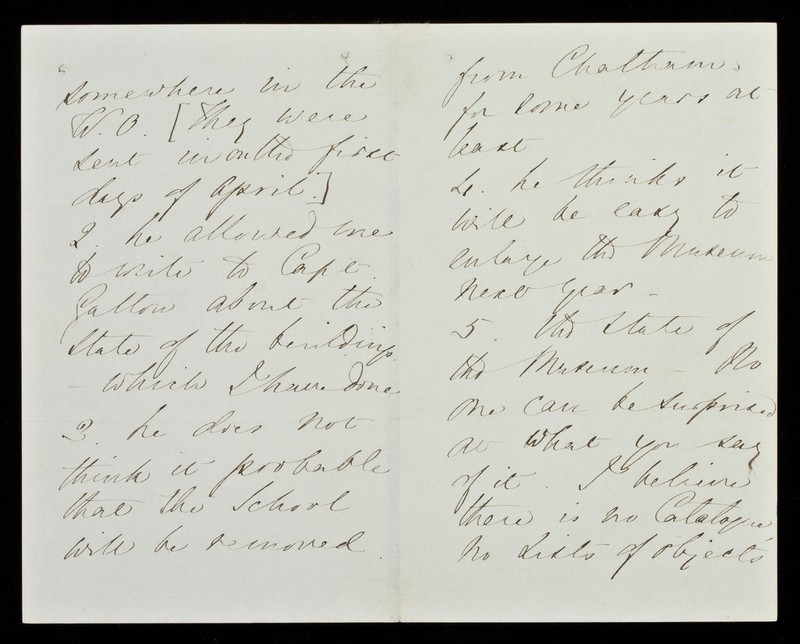 somewhere in the
W.O. [They were
sent in on the first
days of April.]
2. he allowed me
to write to Capt.
Galton about the
state of the buildings
- which I have done
3. he does not
think it probable
that the School
will be removed.
from Chatham,
for some years at
least
4. he thinks it
will be easy to
enlarge the Museum
next year -
5. the state of
the Museum - No
one can be surprised
at what you say
of it. I believe
there is no Catalogue
no Lists of objects